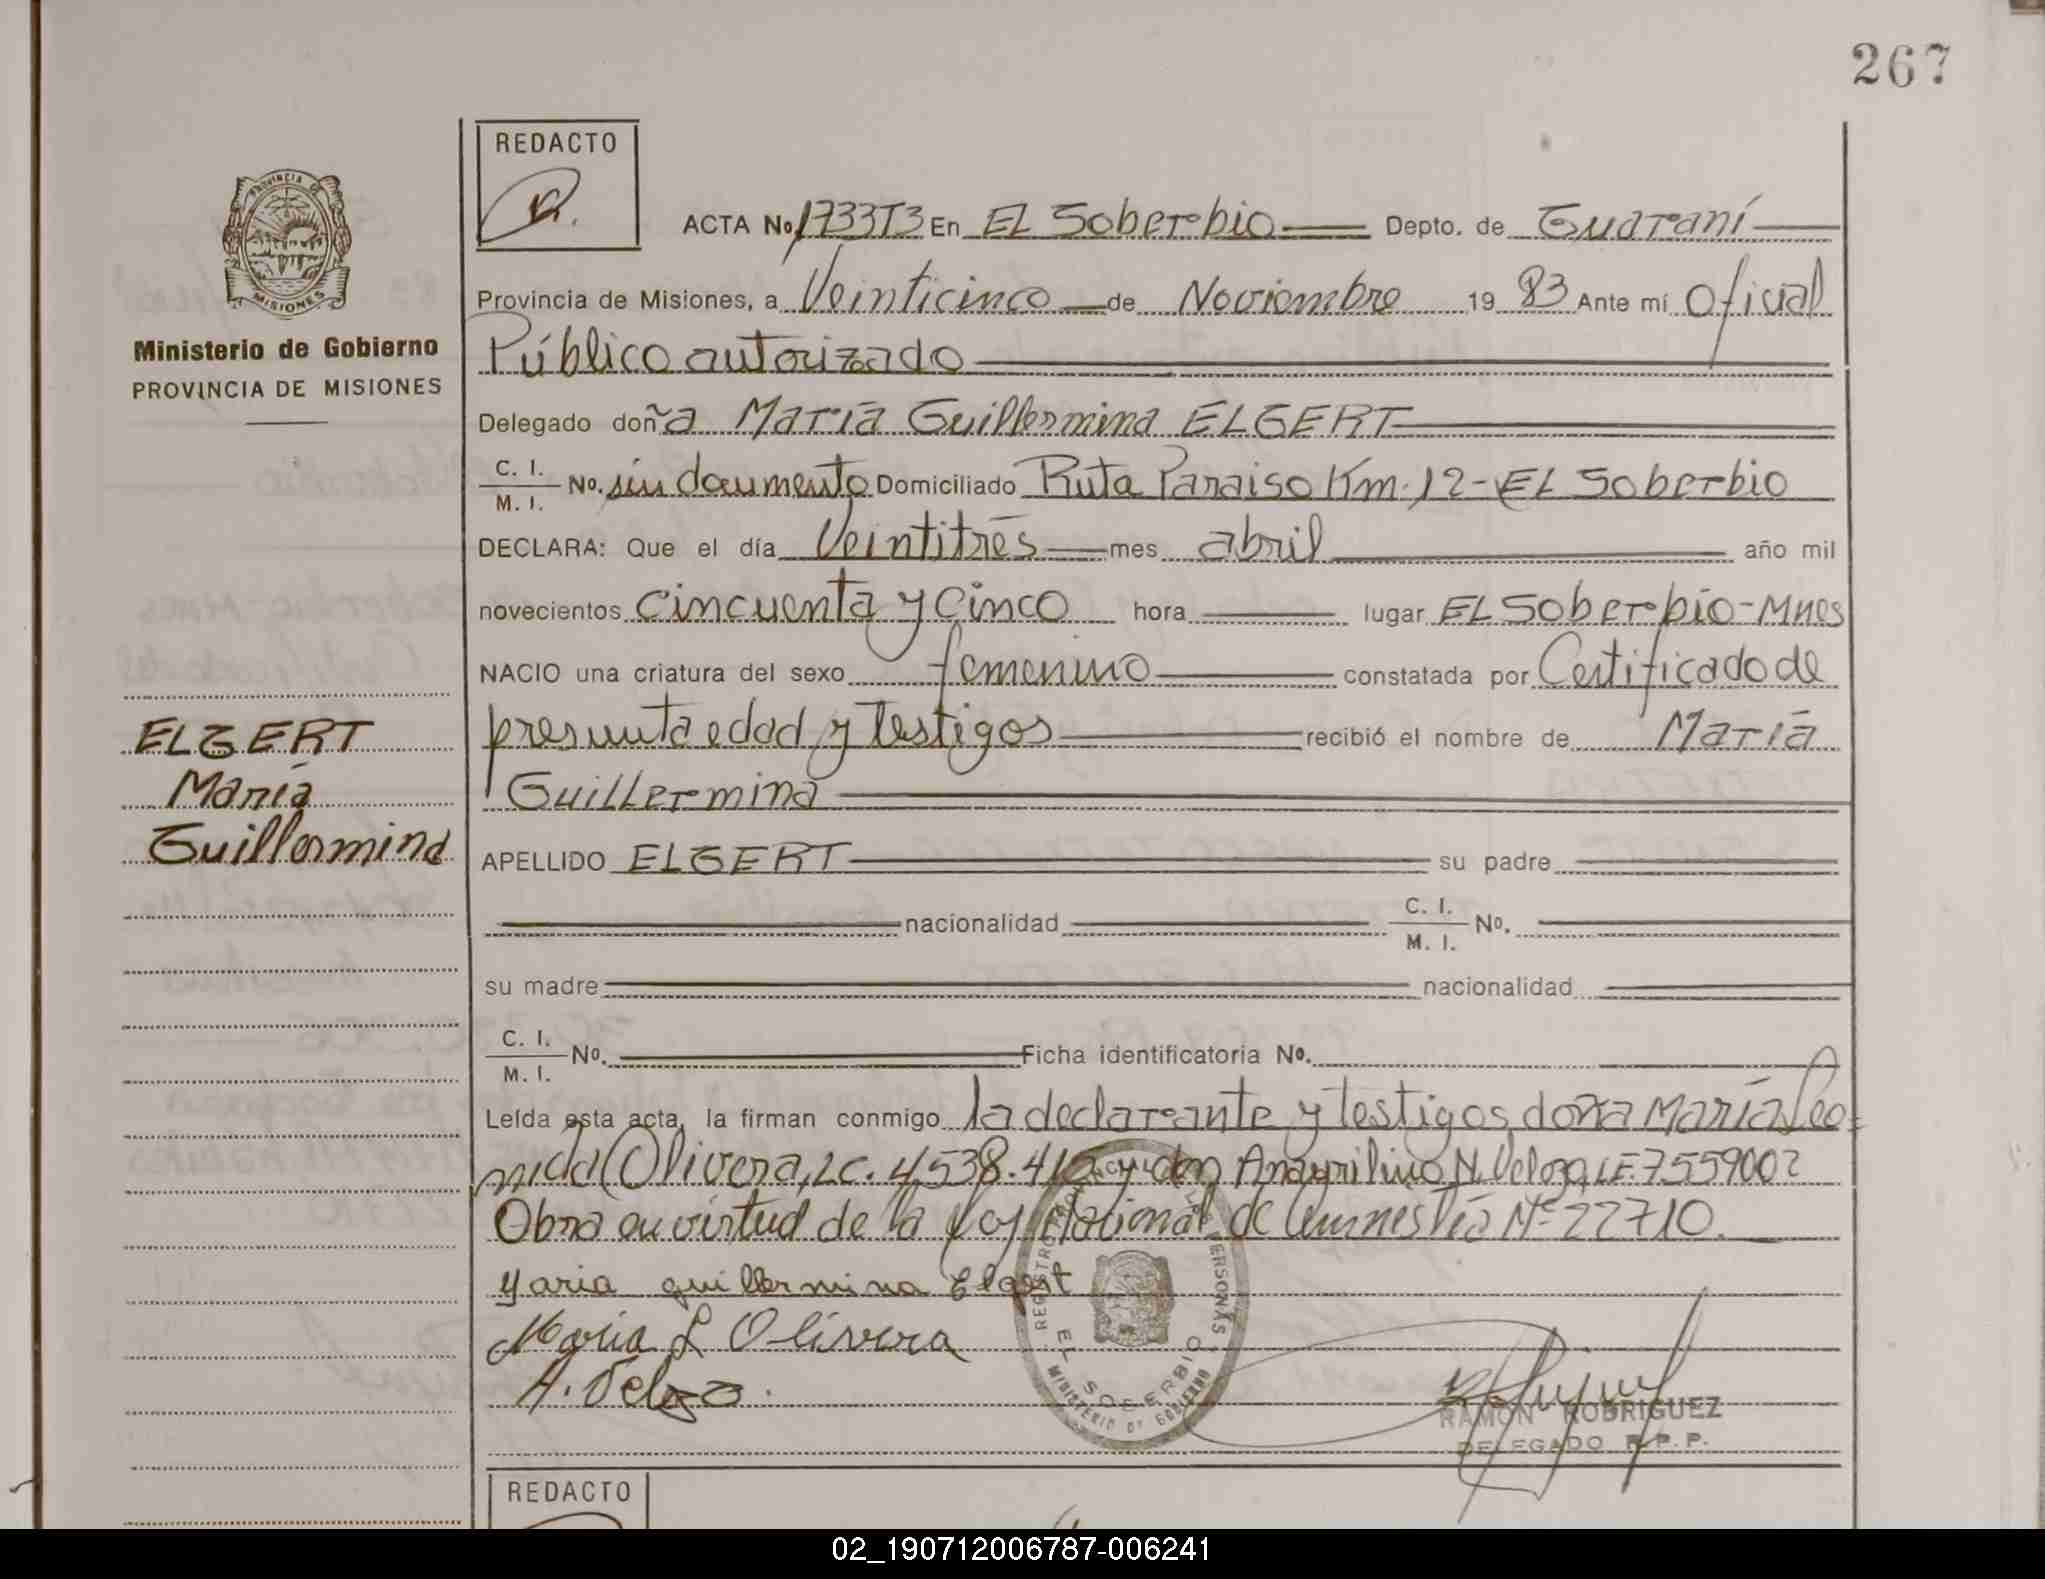 267
REDACTO
ACTA No. 1733T3 En EL Soberbio Depto. de Guaraní
Provincia de Misiones, a Veinticinco de Noviembre 19 83 Ante mí Oficial
Público autorizado
Delegado doña María Guillermina ELGERT
C. I.
M. I.
No. sin documento Domiciliado Ruta Paraiso Km. 12 - EL Soberbio
DECLARA: Que el día Veintitrés mes abril año mil
novecientos Cincuenta y Cinco hora lugar EL Soberbio - Mnes
NACIO una criatura del sexo femenino constatada por Certificado de
presunta edad y Testigos recibió el nombre de María
Guillermina
APELLIDO ELGERT su padre
nacionalidad C. I. M. I. No.
su madre nacionalidad
C. I. M. I. No. Ficha identificatoria No.
Leída esta acta, la firman conmigo la declarante y testigos doña María Leo-
nida Olivera, LC. 4.538.412 y don N. Veloza, LE. 7.559002
Obra en virtud de la Ley Nacional de Amnestía Nº 22710.
Maria guillermina Elgert
Maria L Olivera
A. Veloza.
RAMON RODRIGUEZ
DELEGADO R.P.P.
REGISTRO PROVINCIAL DE LAS PERSONAS
EL SOBERBIO
MINISTERIO DE GOBIERNO
PROVINCIA DE
MISIONES
Ministerio de Gobierno
PROVINCIA DE MISIONES
ELGERT
María
Guillermina
REDACTO
02_190712006787-006241